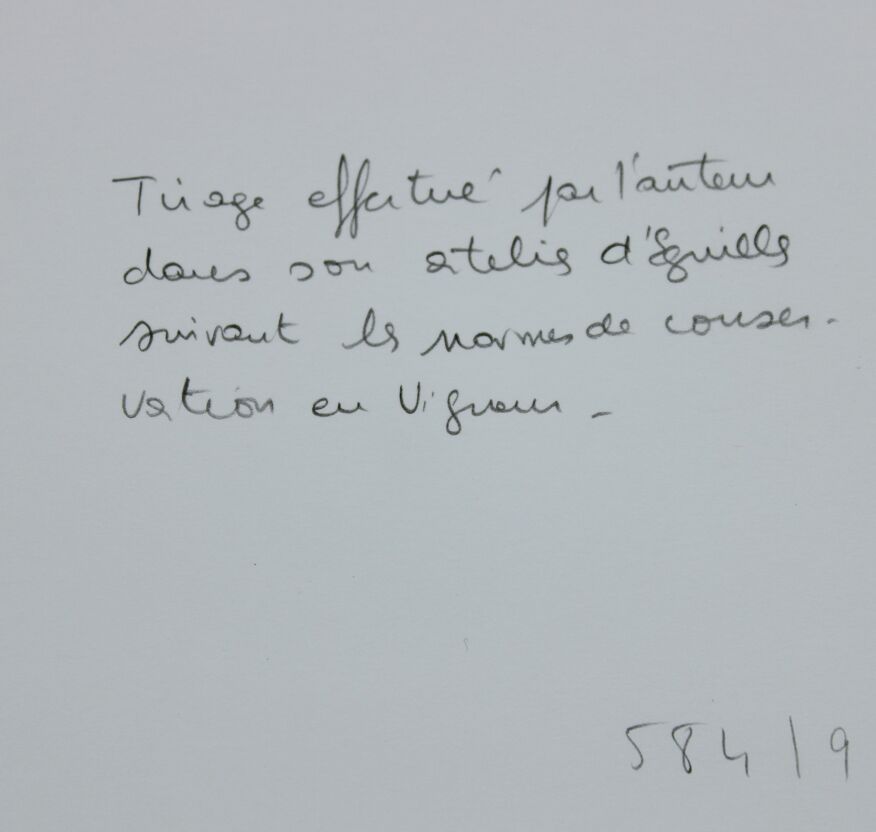 Tirage effectué par l'auteur
dans son atelier d'Eguilles
suivant les normes de conser-
vation en vigueur -
584/9